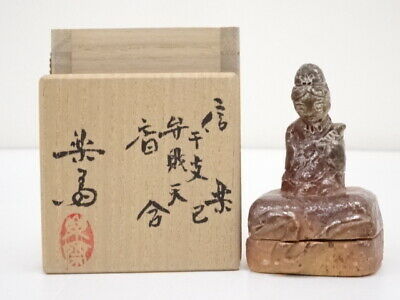 信楽
干支巳
弁財天
香合
楽斎